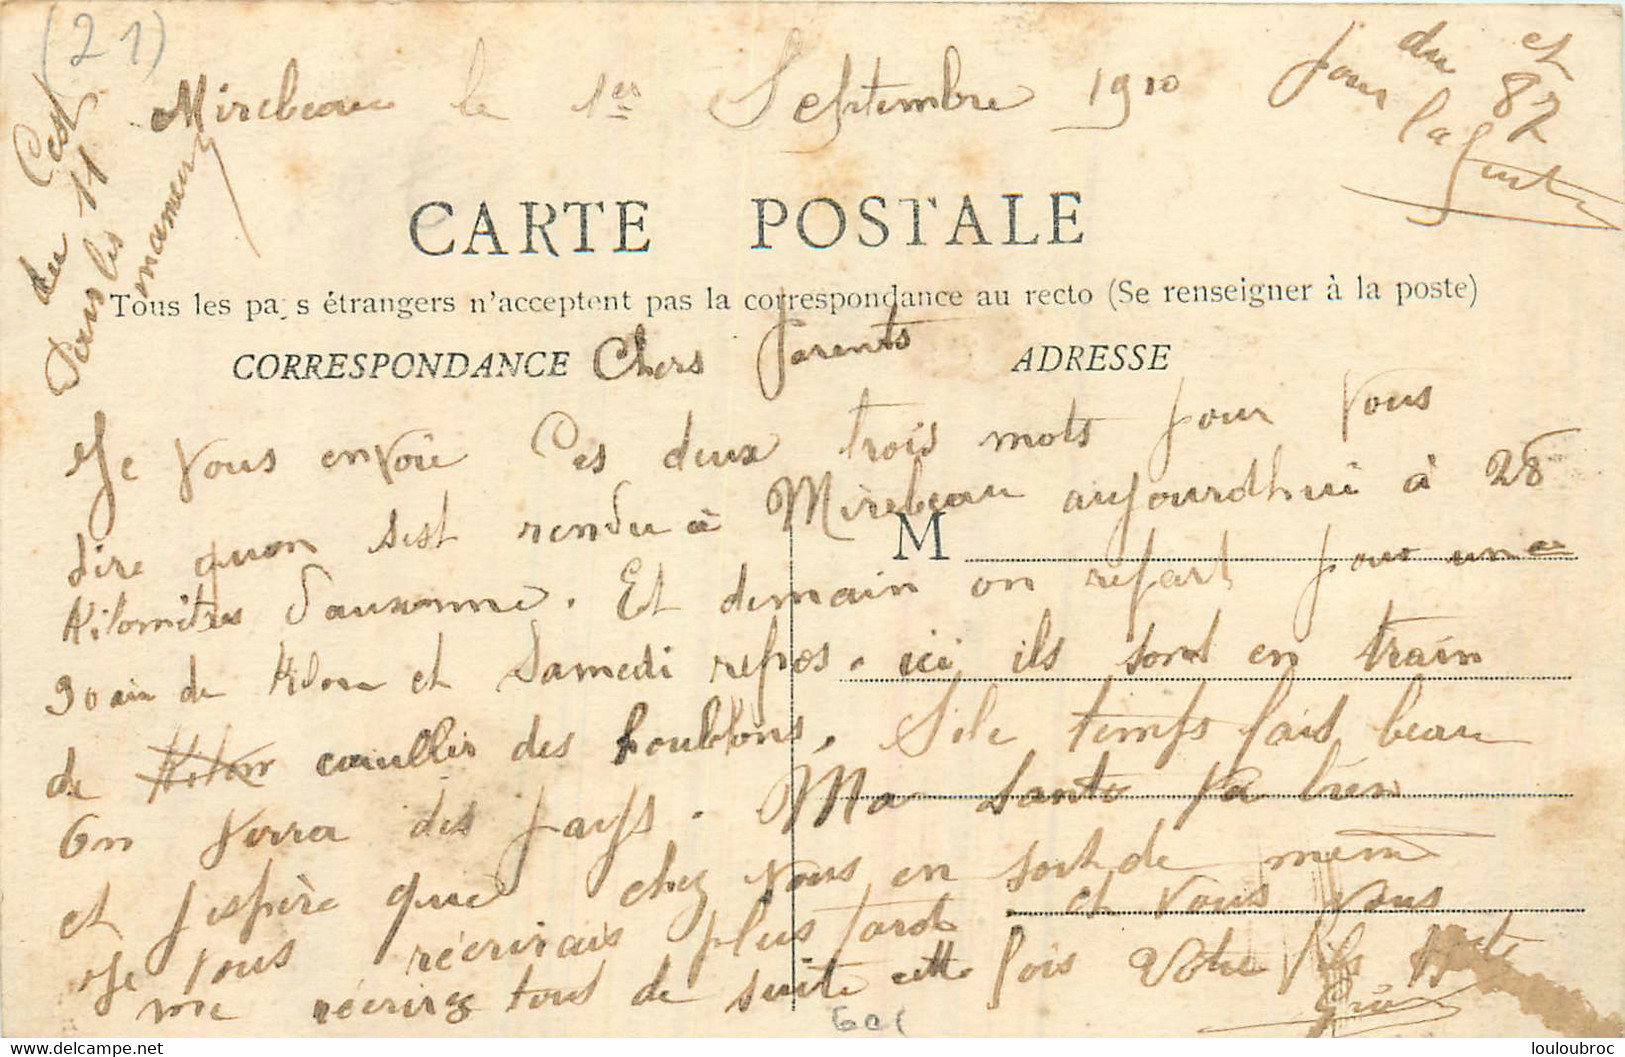 (21)
Mirebeau le 1er Septembre 1910
pour la
du 82
et
C'est
du 11
Dans les
manameuv
CARTE POSTALE
Tous les pays étrangers n'acceptent pas la correspondance au recto (Se renseigner à la poste)
CORRESPONDANCE Chers Parents ADRESSE
Je vous envoie Ces deux trois mots pour Vous
dire quon sest rendu à Mirebeau aujourdhui à 28
M
Kilomètres d'auxonne. Et demain on repart pour une
30 ain de Kilom et Samedi repos. ici ils sont en train
de Kilom cauillir des houblons. Si le temps fais beau
On verra des pays. Ma Santé va bien
et j'espère que chez vous en sort de meme
Je vous réecrirais plus tard et vous vous
me réecrirez tous de suite cette fois Votre fils
601
louloubroc